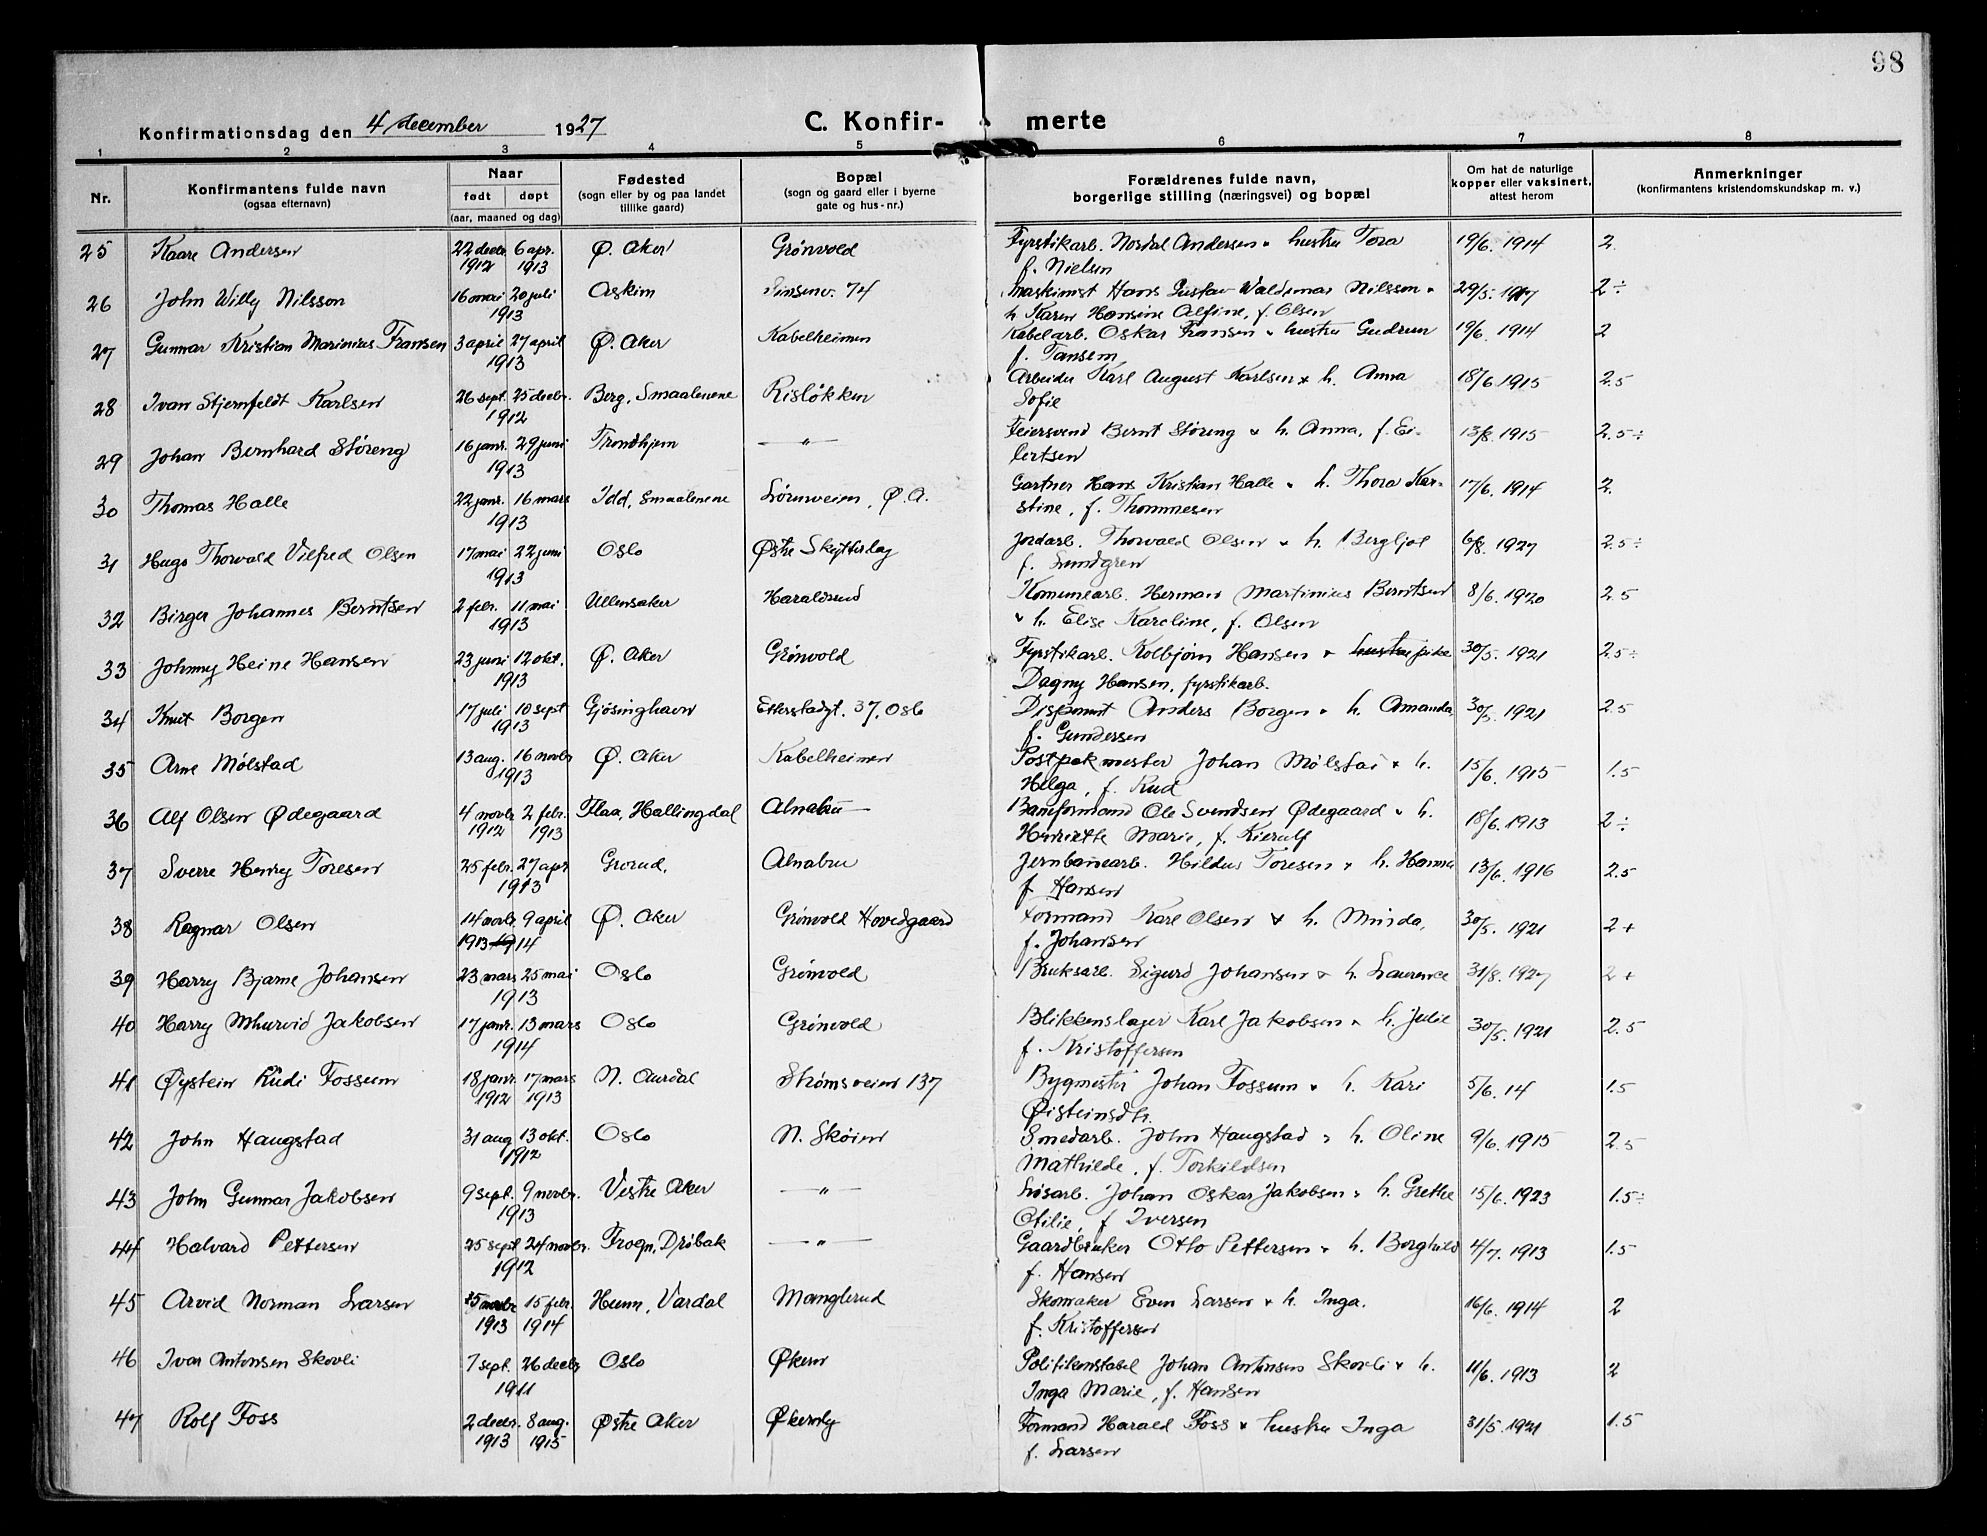 98
Konfirmationsdag den 4 december 1927 C. Konfirmerte
1 2 3 4 5 6 7 8
Nr. Konfirmantens fulde navn (ogsaa efternavn) Naar født døpt (aar, maaned og dag) Fødested (sogn eller by og paa landet tillike gaard) Bopæl (sogn og gaard eller i byerne gate og hus-nr.) Forældrenes fulde navn, borgerlige stilling (næringsvei) og bopæl Om hat de naturlige kopper eller vaksinert, attest herom Anmerkninger (konfirmantens kristendomskundskap m. v.)
25 Kaare Andersen 22 decbr. 6 apr. Ø. Aker Grønvold Fyrstikarb. Nordal Andersen & hustru Tora 19/6. 1914 2.
1912 1913 f. Nielsen
26 John Willy Nilsson 16 mai 20 juli Askim Sinsenv. 74 Maskinist Hans Gustav Waldemar Nilsson & 29/5. 1917 2 ÷
1913 h. Karen Hansine Alfine, f. Olsen
27 Gunnar Kristian Marinius Fransen 3 april 27 april Ø. Aker Kabelheimen Kabelarb. Oskar Fransen & hustru Gudrun 19/6. 1914 2
1913 f. Tansem
28 Ivan Stjernfeldt Karlsen 26 sept. 25 decbr. Berg, Smaalenene Risløkken Arbeider Karl August Karlsen & h. Anna 18/6. 1915 2.5
1912 Sofie
29 Johan Bernhard Støreng 16 janr. 29 juni Trondhjem —"— Feiersvend Bernt Støreng & h. Anna, f. Ei- 13/8. 1915 2.5÷
1913 lertsen
30 Thomas Halle 22 janr. 16 mars Idd, Smaalenene Lørenveien, Ø. A. Gartner Hans Kristian Halle & h. Thora Kar- 17/6. 1914 2.
1913 stine, f. Thommesen
31 Hugo Thorvald Vilfred Olsen 17 mai 22 juni Oslo Østre Skytterlag Jordarb. Thorvald Olsen & h. Bergljot 6/8. 1927 2.5÷
1913 f. Lundgren
32 Birger Johannes Berntsen 2 febr. 11 mai Ullensaker Haraldrud Komunearb. Herman Martinius Berntsen 8/6. 1920 2.5
1913 & h. Elise Karoline, f. Olsen
33 Johnny Heine Hansen 23 juni 12 okt. Ø. Aker Grønvold Fyrstikarb. Kolbjørn Hansen & hustru pike 30/5. 1921 2.5÷
1913 Dagny Hansen, fyrstikarb.
34 Knut Borgen 17 juli 10 sept Gjøsinghavn Etterstadgt. 37, Oslo Disponent Anders Borgen & h. Amanda, 30/5. 1921 2.5
1913 f. Gundersen
35 Arne Mølstad 13 aug. 16 novbr Ø. Aker Kabelheimen Postpakmester Johan Mølstad & h. 15/6. 1915 1.5
1913 Helga, f. Rud
36 Alf Olsen Ødegaard 4 novbr 2 febr. Flaa, Hallingdal Alnabru Baneformand Ole Svendsen Ødegaard & h. 18/6. 1913 2 ÷
1912 1913 Henriette Marie, f. Kierulf
37 Sverre Henry Toresen 25 febr. 27 apr Grorud. Alnabru Jernbanearb. Hildus Toresen & h. Hanna 13/6. 1916 2.5
1913 f. Hansen
38 Ragnar Olsen 14 novbr 9 april Ø. Aker Grønvold Hovedgaard Formand Karl Olsen & h. Minda, 30/5. 1921 2+
1913 1914 f. Johansen
39 Harry Bjarne Johansen 23 mars 25 mai Oslo Grønvold Bruksarb. Sigurd Johansen & h. Laurence 31/8. 1927 2+
1913
40 Harry Mhurvid Jakobsen 17 janr. 13 mars Oslo Grønvold Blikkenslager Karl Jakobsen & h. Julie 30/5. 1921 2.5
1914 f. Kristoffersen
41 Øystein Rudi Fossum 18 janr. 17 mars N. Aurdal Strømsveien 137 Bygmester Johan Fossum & h. Kari 5/6. 14 1.5
1912 1913 Øisteinsdtr.
42 John Haugstad 31 aug 13 okt. Oslo N. Skøien Smedarb. John Haugstad & h. Oline 9/6. 1915 2.5
1912 Mathilde, f. Torkildsen
43 John Gunnar Jakobsen 9 sept. 9 novbr. Vestre Aker —"— Løsarb. Johan Oskar Jakobsen & h. Grethe 15/6. 1923 1.5÷
1913 Otilie, f. Iversen
44 Halvard Pettersen 25 sept 24 novbr. Frogn, Drøbak —"— Gaardbruker Otto Pettersen & h. Borghild 4/7. 1913 1.5
1912 f. Hansen
45 Arvid Norman Larsen 25 novbr 15 febr. Hunn, Vardal Manglerud Skomaker Even Larsen & h. Inga. 16/6. 1914 2
1913 1914 f. Kristoffersen
46 Ivar Antonsen Skovli 7 sept. 26 decbr Oslo Økern Politikonstabel Johan Antonsen Skovli & h. 11/6. 1913 2
1911 Inga Marie, f. Hansen
47 Rolf Foss 2 decbr. 8 aug. Østre Aker Økernly Formand Harald Foss & hustru Inga 31/5. 1921 1.5
1913 1915 f. Larsen